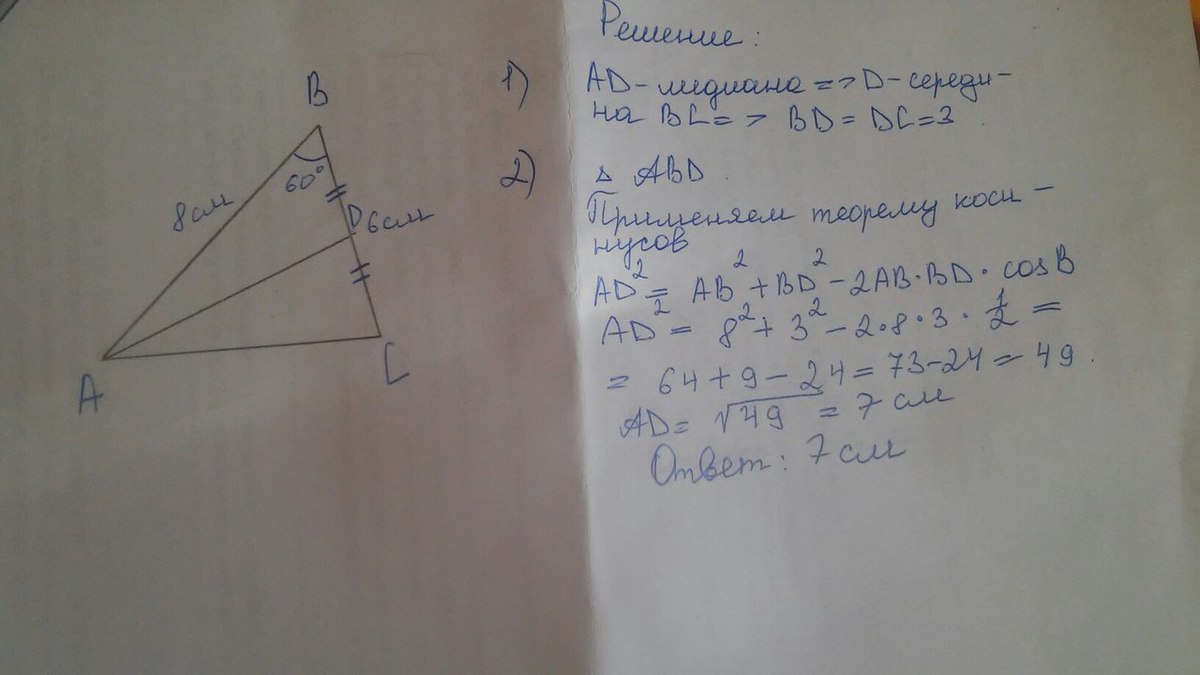 B
60°
8см
D 6см
A
C
Решение:
1) AD-медиана => D-середи-
на BC => BD = DC = 3
2) △ ABD.
Применяем теорему коси-
нусов
AD² = AB² + BD² - 2AB·BD·cosB
AD² = 8² + 3² - 2·8·3·1/2 =
= 64 + 9 - 24 = 73-24 = 49.
AD = √49 = 7 см
Ответ: 7 см